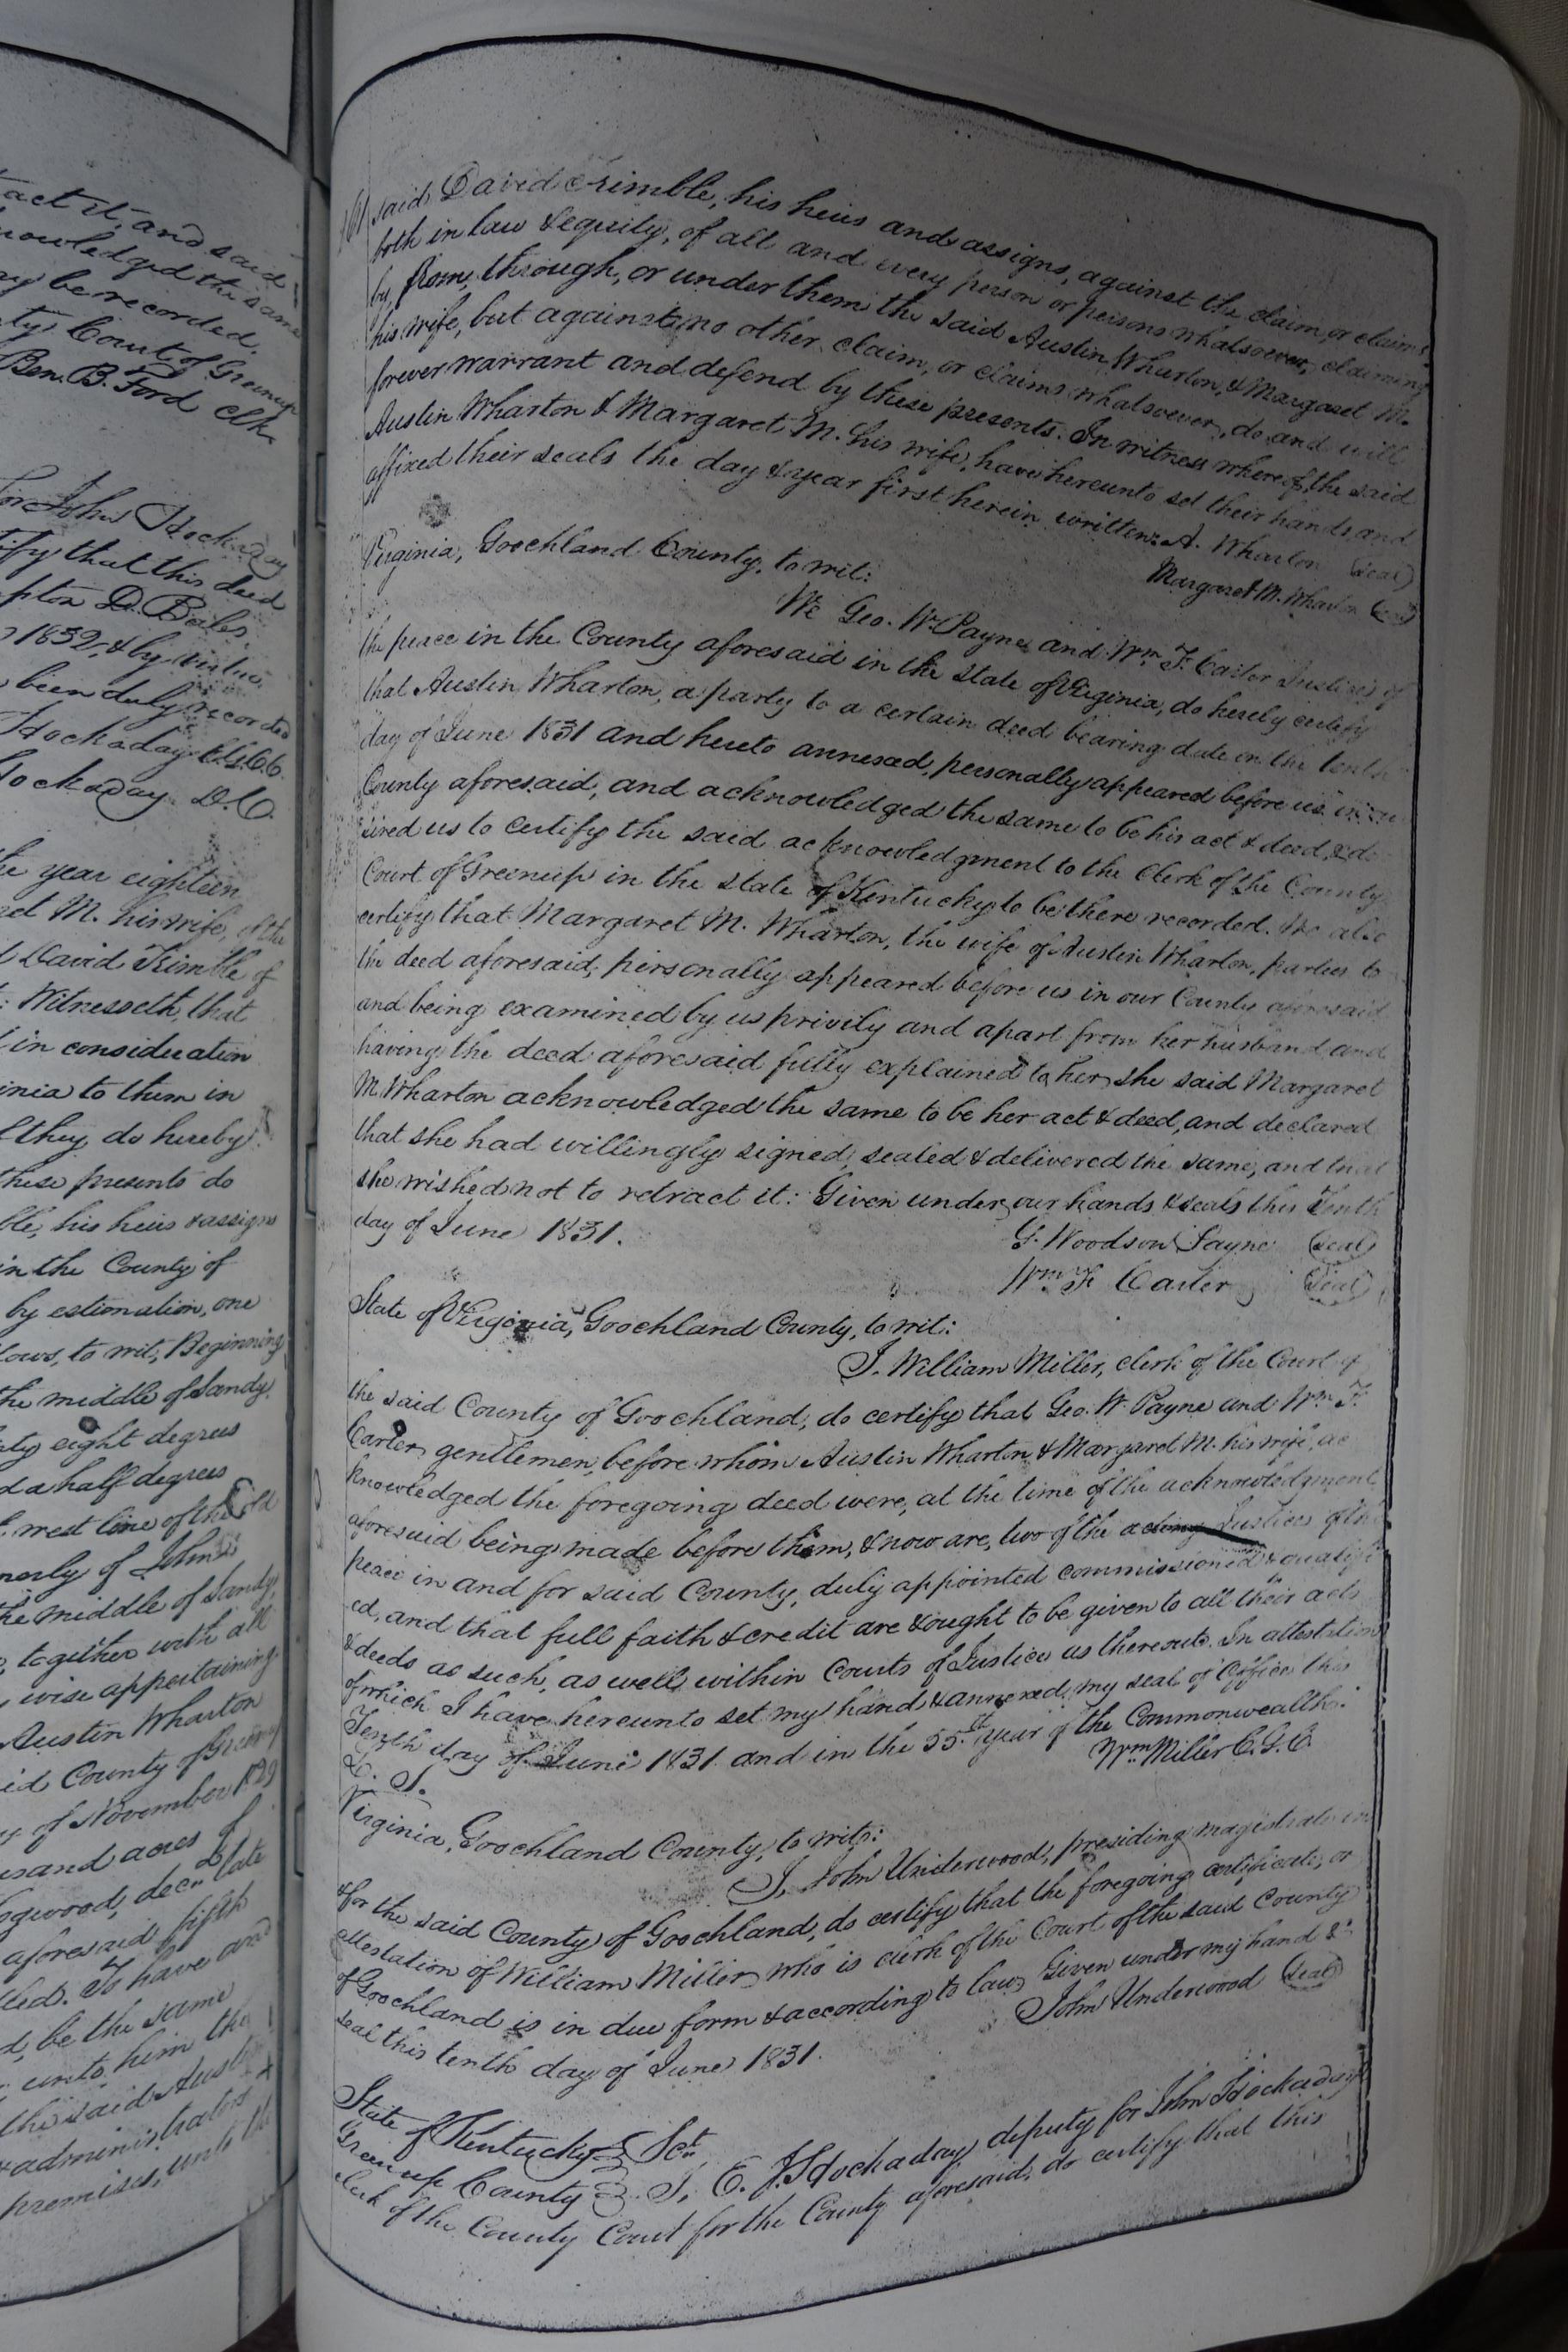 act it, and said
nowledged the same
ay be recorded.
ty Court of Greenup
Ben. B. Ford Clk.
for John Hockaday
tify that this deed
pton D. Beiles
1832, & by virtue
been duly recorded
Hockaday Clk G.C.C.
Hockaday D.C.
he year eighteen
ret M. his wife, of the
d David Trimble of
: Witnesseth, that
in consideration
inia to them in
they do hereby
these presents do
ble, his heirs & assigns
in the County of
by estimation, one
lows, to wit, Beginning
the middle of Sandy
ty eight degrees
d a half degrees
west line of the old
merly of John
the middle of Sandy,
together with all
wise appertaining
Austin Wharton
id County of Greenup
y of November 1829
usand acres of
ogwood, decn late
aforesaid fifth
led. To have and
d, be the same
unto him the
the said Austin
administrators
premises, unto the
161 said David Trimble, his heirs and assigns, against the claim, or claims
both in law & equity, of all and every person or persons whatsoever, claiming
by, from, through, or under them the said Austin Wharton, & Margaret M.
his wife, but against no other claim, or claims whatsoever, do and will
forever warrant and defend by these presents. In witness whereof, the said
Austin Wharton & Margaret M. his wife, have hereunto set their hands, and
affixed their seals the day & year first herein written. A. Wharton (Seal)
Margaret M. Wharton (Seal)
Virginia, Goochland County, to wit:
We Geo. W. Payne and Wm. F. Carter Justices of
the peace in the County aforesaid in the State of Virginia, do hereby certify
that Austin Wharton, a party to a certain deed bearing date on the tenth
day of June 1831 and hereto annexed, personally appeared before us in our
County aforesaid, and acknowledged the same to be his act & deed, & de
sired us to certify the said acknowledgment to the Clerk of the County
Court of Greenup in the State of Kentucky to be there recorded. We also
certify that Margaret M. Wharton, the wife of Austin Wharton, parties to
the deed aforesaid, personally appeared before us in our County aforesaid
and being examined by us privily and apart from her husband, and
having the deed aforesaid fully explained to her, she said Margaret
M. Wharton acknowledged the same to be her act & deed, and declared
that she had willingly signed, sealed & delivered the same, and that
she wished not to retract it: Given under our hands & seals this Tenth
day of June 1831. G. Woodson Payne (Seal)
Wm. F. Carter (Seal)
State of Virginia, Goochland County, to wit:
I. William Miller, clerk of the Court of
the said County of Goochland, do certify that Geo. W. Payne and Wm. F.
Carter, gentlemen, before whom Austin Wharton & Margaret M. his wife, ac
knowledged the foregoing deed were, at the time of the acknowledgment
aforesaid being made before them, & now are, two of the acting Justices of the
peace in and for said County, duly appointed commissioned & qualifi
ed, and that full faith & credit are & ought to be given to all their acts
& deeds as such, as well within Courts of Justice as thereout. In attestation
of which I have hereunto set my hand & annexed my seal of Office this
Tenth day of June 1831. and in the 55th year of the Commonwealth.
L. S. Wm. Miller C. G. C.
Virginia, Goochland County, to wit:
I, John Underwood, presiding magistrate in
& for the said County of Goochland, do certify that the foregoing certificate, or
attestation of William Miller, who is clerk of the Court of the said County
of Goochland is in due form & according to law. Given under my hand &
seal this tenth day of June 1831. John Underwood (Seal)
State of Kentucky Sct.
Greenup County I, E. J. Hockaday deputy for John Hockaday
clerk of the County Court for the County aforesaid, do certify that this